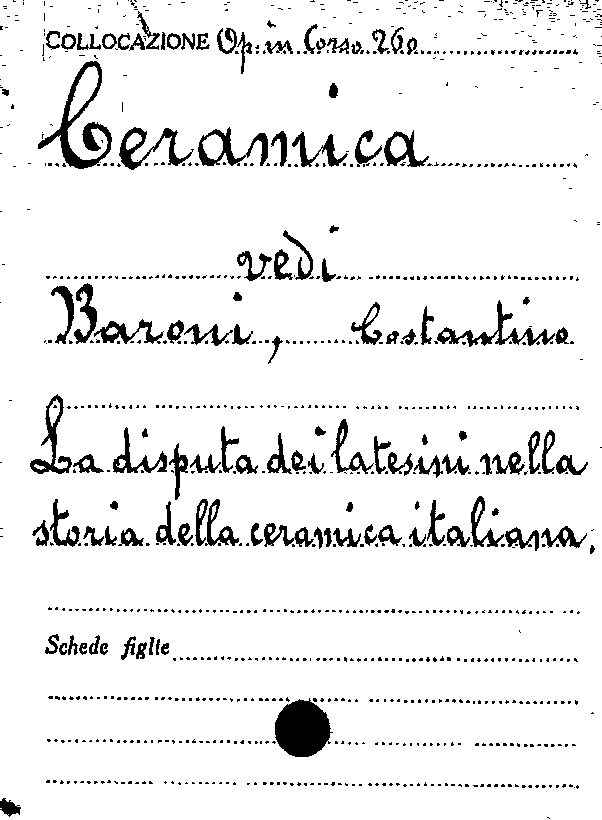 COLLOCAZIONE Op. in Corso 260
Ceramica
vedi
Baroni, Costantino
La disputa dei latesini nella
storia della ceramica italiana.
Schede figlie